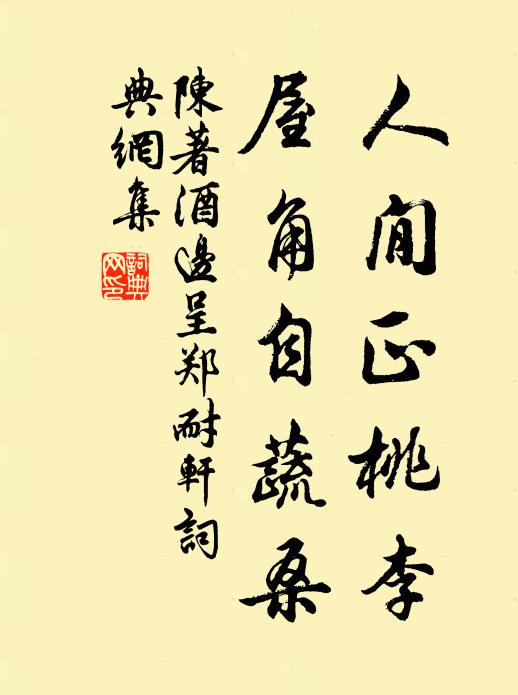 人間正桃李
屋角自蔬桑
陳著酒邊呈郑耐軒詞
典網集
詞典
网印